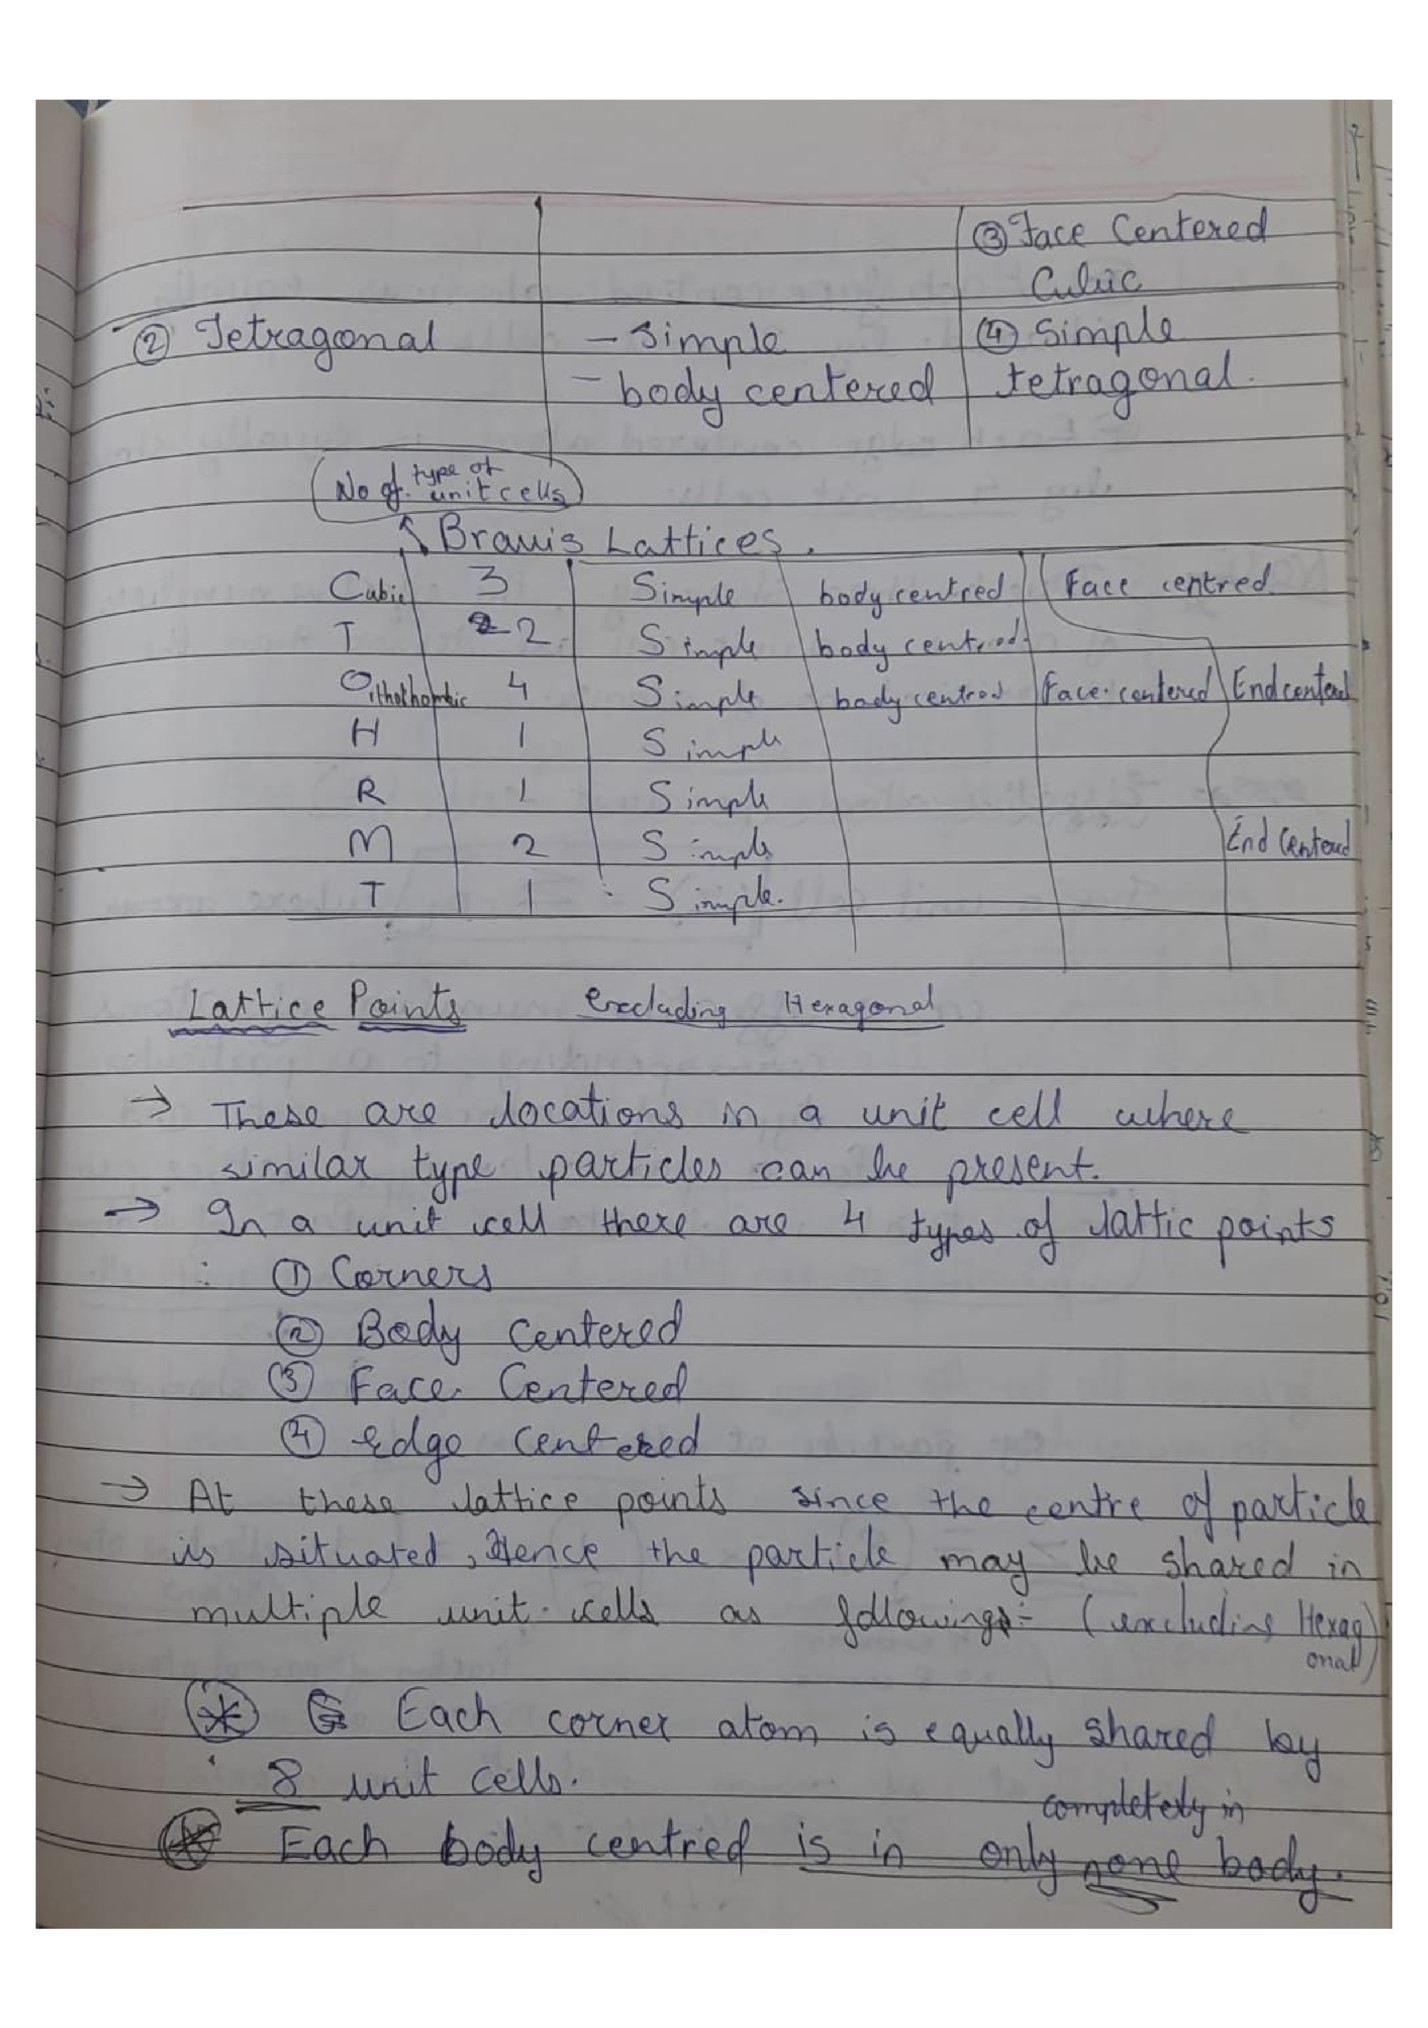 ③ Face Centered
Cubic
② Tetragonal - Simple ④ Simple
- body centered tetragonal.
No of. type of
unit cells
Bravis Lattices.
Cubic 3 Simple body centred Face centred
T 2 Simple body centred.
Orthothombic 4 Simple body centred Face centered End centered
H 1 Simple
R 1 Simple
M 2 Simple End Centered
T 1 Simple.
Lattice Points excluding Hexagonal
→ These are locations in a unit cell where
similar type particles can be present.
→ In a unit cell there are 4 types of lattic points
① Corners
② Body Centered
③ Face Centered
④ edge centered
→ At these lattice points since the centre of particle
is situated, Hence the particle may be shared in
multiple unit cells as followings:- (excluding Hexag
onal)
Each corner atom is equally shared by
8 unit cells.
completely in
Each body centred is in only one body.